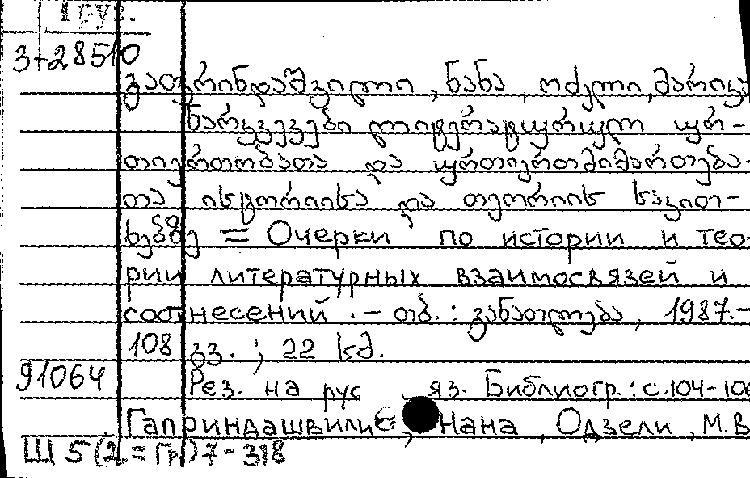 1 груз.
3+28510
გაფრინდაშვილი, ნანა, ოძელი, მარიკა
ნარკვევები ლიტერატურულ ურ-
თიერთობათა და ურთიერთმიმართება-
თა ისტორიისა და თეორიის საკით-
ხებზე = Очерки по истории и тео-
рии литературных взаимосвязей и
соотнесений. - თბ.: განათლება, 1987.-
108 გვ. ; 22 სმ.
91064
Рез. на рус яз. Библиогр.: с.104-106
Гаприндашвили, Нана, Одзели, М.В
Ш5(2=Гр)7-318